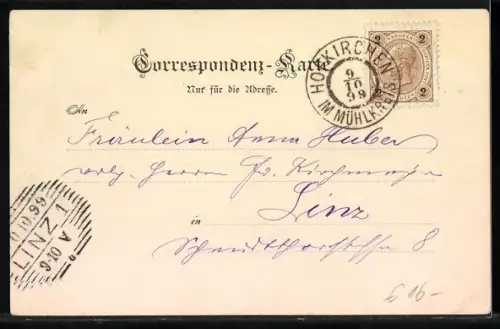 Correspondenz-Karte
Nur für die Adresse.
2 2
2 2
HOFKIRCHEN
9
10
99
IM MÜHLKREIS
An
Fräulein Anna Huber
Herrn
in Linz
8
10.99
LINZ 1
9-10 V